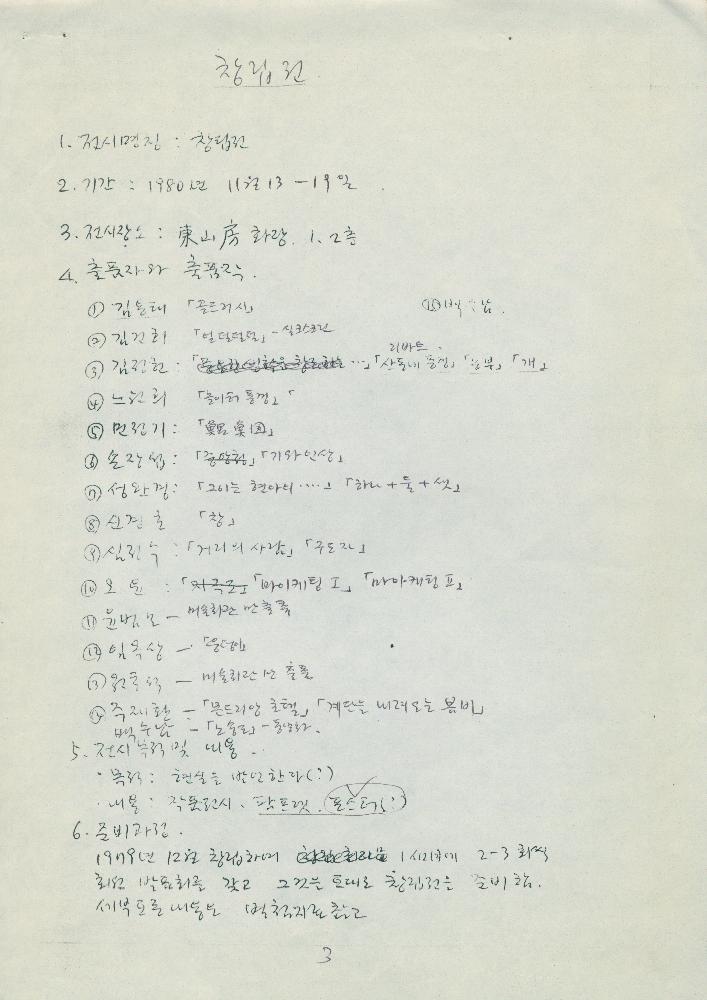 창립전
1. 전시명칭 : 창립전
2. 기간 : 1980년 11월 13 - 19일
3. 전시장소 : 東山房 화랑. 1, 2층
4. 출품자와 출품작.
① 김용태 「골드러시」 ⑮ 백수남.
② 김건희 「얼덜덜덜」 - 실크스크린
③ 김정헌 : 「산동네 풍경」 「농부」 「개」
리바트.
④ 노원희 「놀이터 풍경」 「
⑤ 민정기 :
⑥ 손장섭 : 「기와인상」
⑦ 성완경 : 「그이는 현다이 ‥‥」 「하나 + 둘 + 셋」
⑧ 신경호 「창」
⑨ 심정수 : 「거리의 사람」 「구도자」
⑩ 오윤 : 「지옥도」 「마아케팅 I」 「마아케팅 II」
⑪ 윤범모 - 미술회관 만 출품
⑫ 임옥상 - 「웅덩이」
⑬ 원동석 - 미술회관 만 출품
⑭ 주재환 - 「몬드리앙 호텔」 「계단을 내려오는 봄비」
백수남 -
5. 전시목적 및 내용.
· 목적 : 현실을 발언한다(?)
· 내용 : 작품전시. 팜프렛. 포스터(?)
6. 준비과정.
1979년 12월 창립하여 2-3회씩
회원 발표회를 갖고 그것을 토대로 창립전을 준비함.
세부토론내용은 별첨자료참고
3